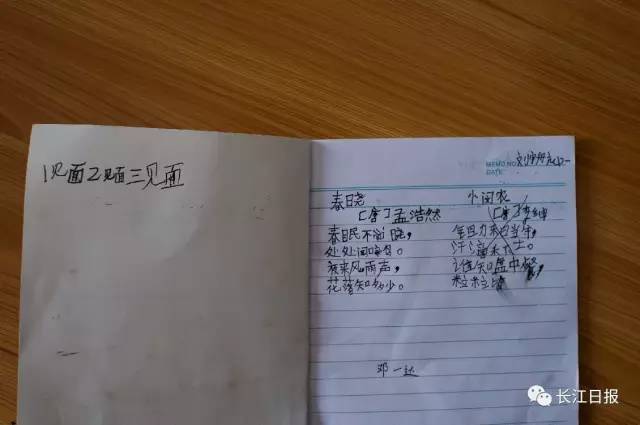 1见面2见面三见面
MEMO NO.
DATE
春晓
[唐]孟浩然
春眠不 晓,
处处闻啼鸟。
夜来风雨声,
花落知多少。
农
[唐]
禾日当午,
汗滴禾下土。
谁知盘中餐,
粒粒皆
邓一
长江日报